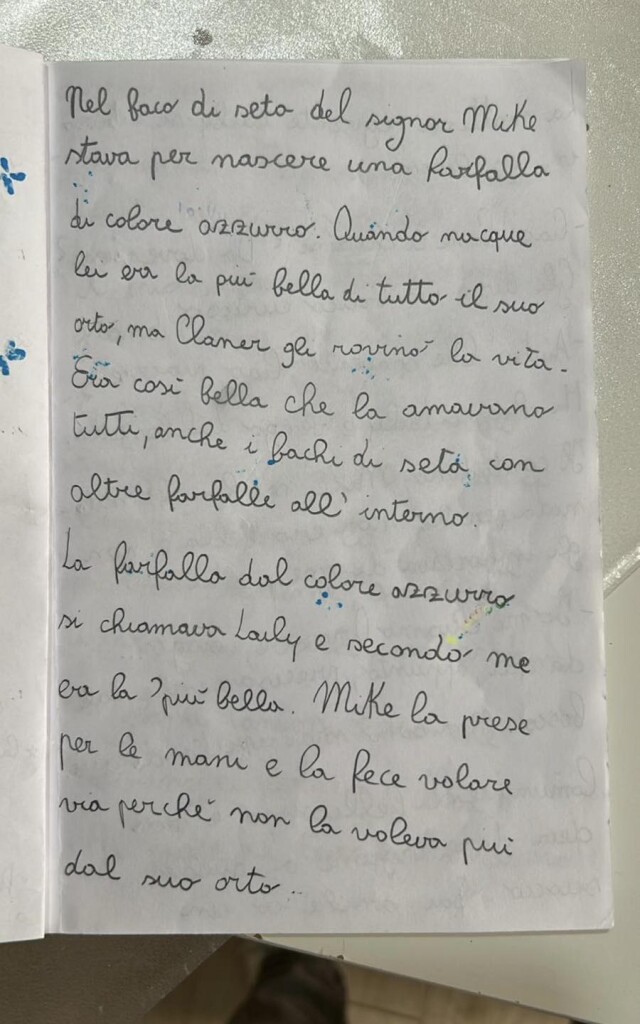 Nel baco di seta del signor Mike
stava per nascere una farfalla
di colore azzurro. Quando nacque
lei era la piú bella di tutto il suo
orto, ma Claner gli rovinó la vita.
Era cosí bella che la amavano
tutti, anche i bachi di seta con
altre farfalle all' interno.
La farfalla dal colore azzurro
si chiamava Laily e secondo me
era la piú bella. Mike la prese
per le mani e la fece volare
via perché non la voleva piú
dal suo orto.